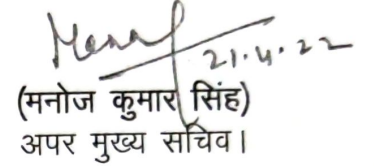 21.4.22
(मनोज कुमार सिंह)
अपर मुख्य सचिव।